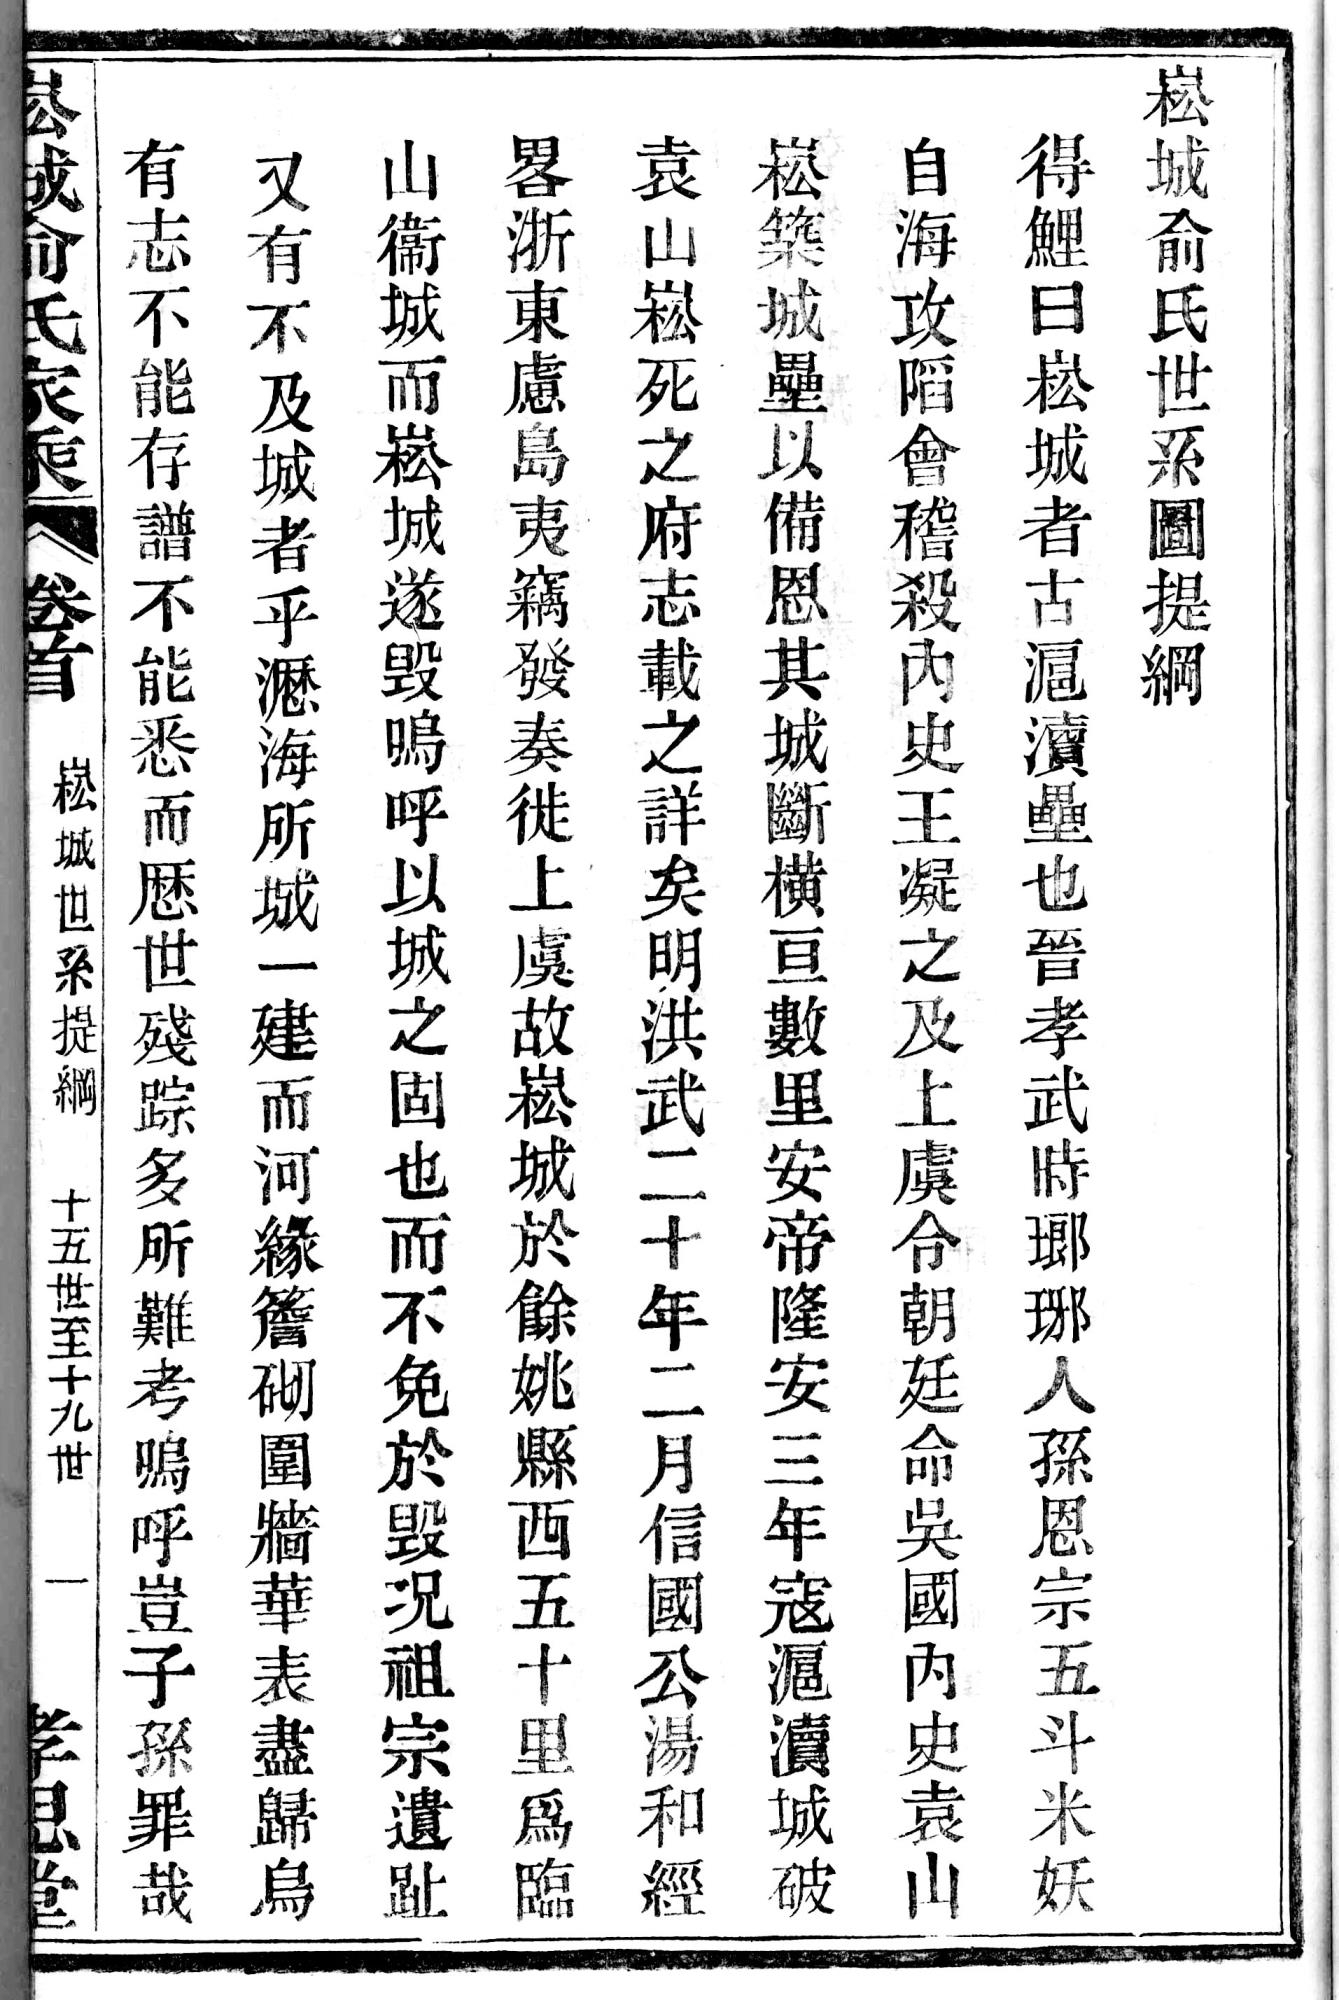 崧城俞氏世系圖提綱
得鯉曰崧城者古滬瀆壘也晉孝武時瑯琊人孫恩宗五斗米妖
自海攻䧟會稽殺內史王凝之及上虞令朝廷命吳國內史袁山
崧築城壘以備恩其城斷橫亘數里安帝隆安三年寇滬瀆城破
袁山崧死之府志載之詳矣明洪武二十年二月信國公湯和經
畧浙東慮島夷竊發奏徙上虞故崧城於餘姚縣西五十里爲臨
山衞城而崧城遂毀嗚呼以城之固也而不免於毀况祖宗遺趾
又有不及城者乎瀝海所城一建而河緣簷砌圍牆華表盡歸烏
有志不能存譜不能悉而歷世殘踪多所難考嗚呼豈子孫罪哉
崧城俞氏家乘 卷首 崧城世系提綱 十五世至十九世 一 孝思堂